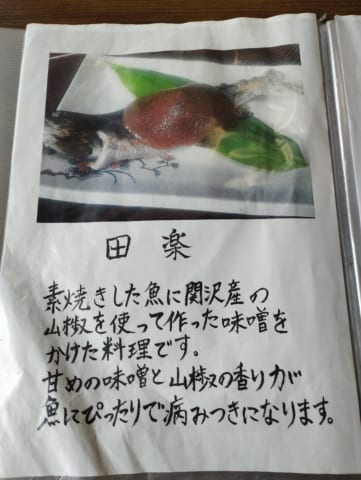 田楽
素焼きした魚に関沢産の
山椒を使って作った味噌を
かけた料理です。
甘めの味噌と山椒の香りが
魚にぴったりで病みつきになります。